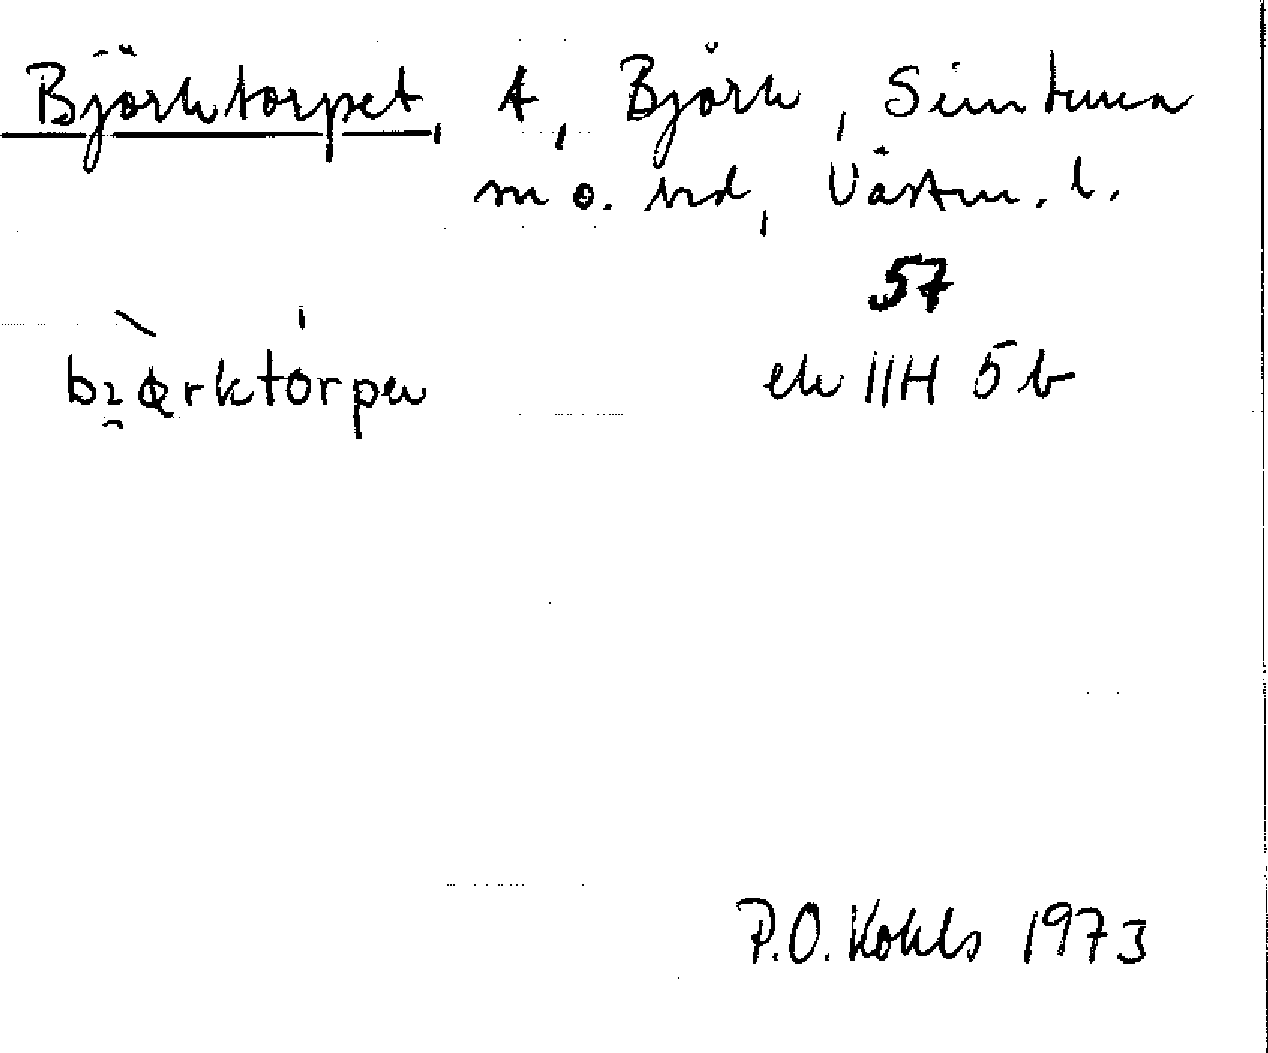 Björktorpet, t, Björk, Simtuna
m o. hd, Västm. l.
57
ek 11H 5b
P.O. Kohls 1973